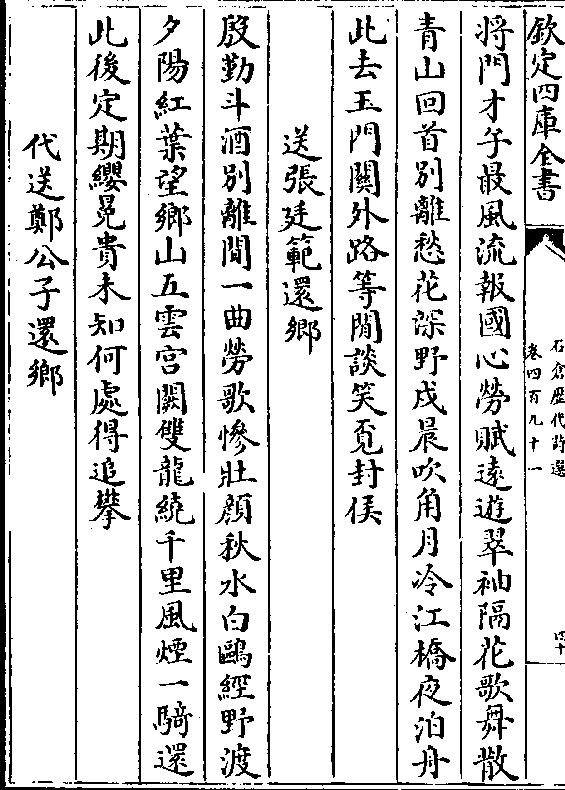 欽定四庫全書
石倉歴代詩選
卷四百九十一
四十
將門才子最風流報國心勞賦遠遊翠袖隔花歌舞散
青山回首別離愁花深野戍晨吹角月冷江橋夜泊舟
此去玉門關外路等閒談笑覓封侯
送張廷範還鄉
殷勤斗酒別離間一曲勞歌慘壯顔秋水白鷗經野渡
夕陽紅葉望鄉山五雲宫闕雙龍繞千里風煙一騎還
此後定期纓冕貴未知何處得追攀
代送鄭公子還鄉